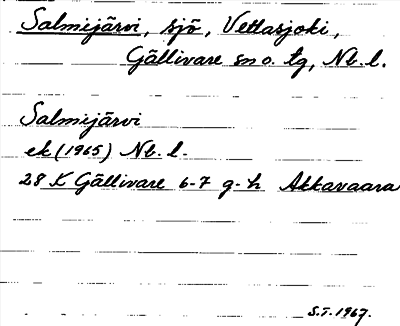 Salmijärvi, sjö, Vettasjoki,
Gällivare sn o. tg, Nb. l.
Salmijärvi
ek (1965) Nb. l.
28 K Gällivare 6-7 g-h Akkavaara
S.T. 1967.